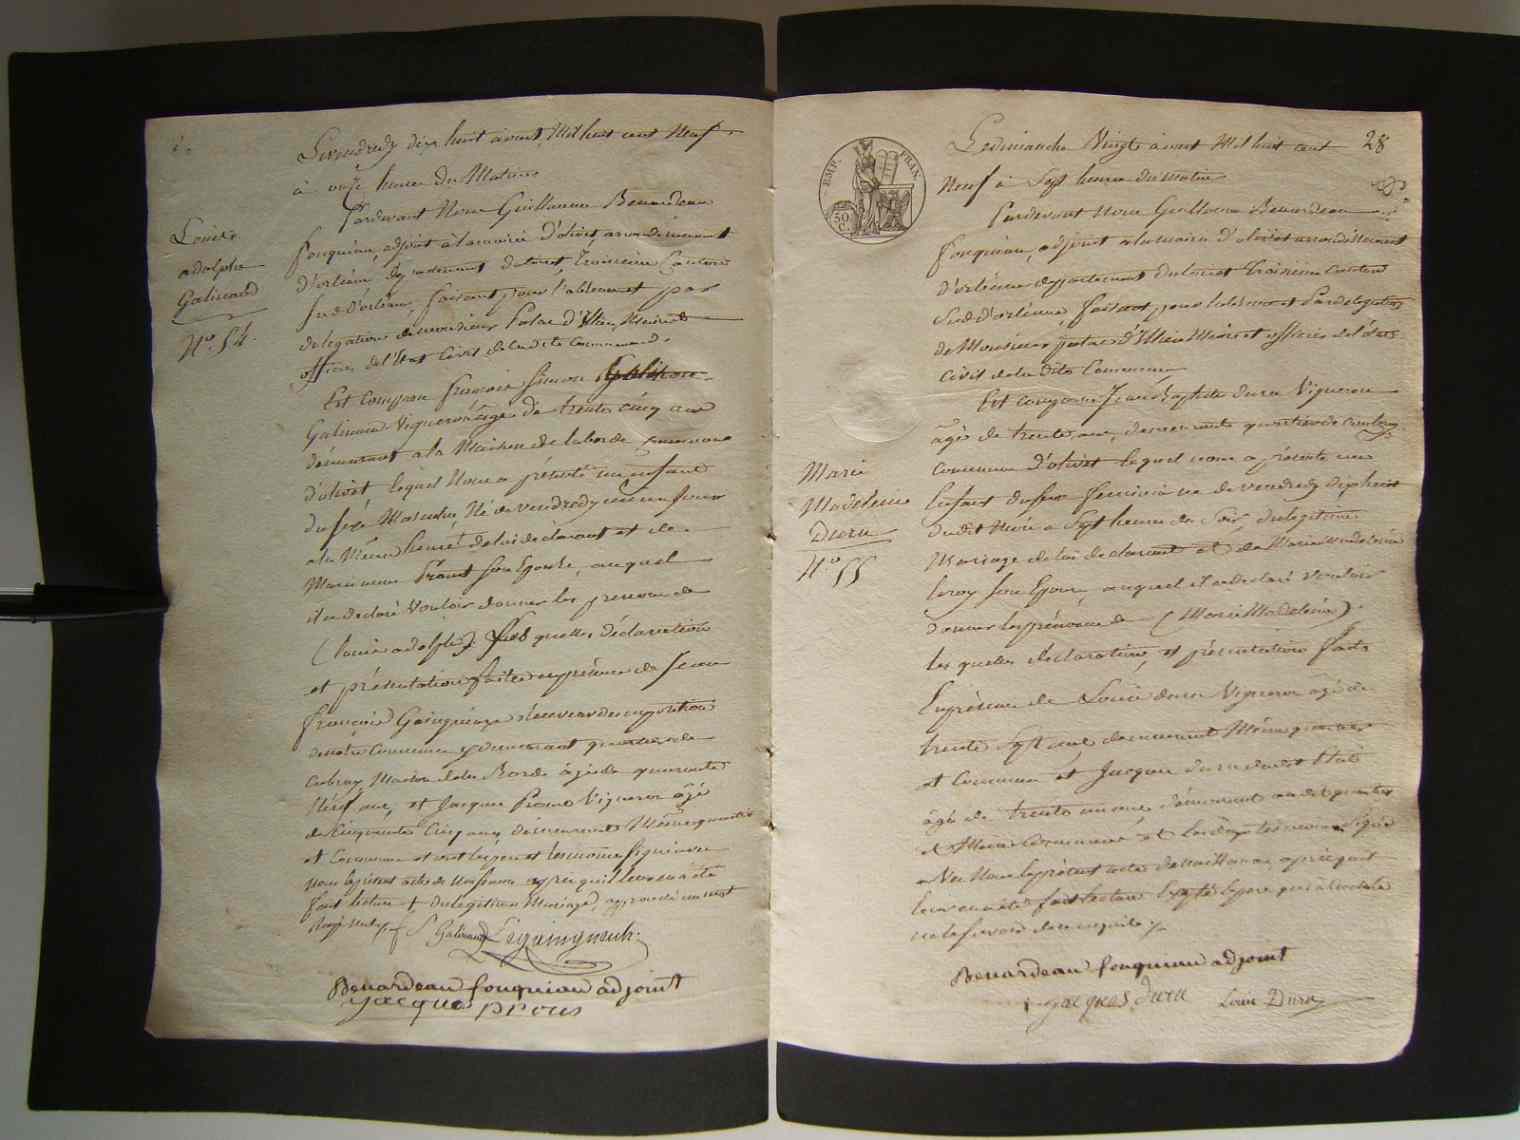 Le vendredy dix huit aoust, Mil huit cent Neuf
à onze heures du Matin
Pardevant Nous Guillaume Beuardeau
fouquiau, adjoint à la mairie d'olivet, arrondissement
d'orléans, département du loiret, troisième Canton
Sud d'orléans, faisant pour l'absence et par
délégation de monsieur Maire
officier de l'état Civil de la dite Commune
Louis
adolphe
Galinaud
N.º 54.
Est Comparu françois Simon
Galinaud Vigneron âgé de trente cinq ans
demeurant a la Maison de la borde commune
d'olivet, lequel Nous a présenté un enfant
du sexe Masculin Né de vendredy
a la Même heure de lui déclarant et de
Marie anne Proust son Epouse, auquel
il a déclaré Vouloir donner les prenoms de
(louis adolphe) Les quelles déclaration
et présentation faites en présence de Jean
françois
de notre Commune y demeurant quartier de
Maison de la Borde âgé de quarante
Neuf ans, et Jacques Prous Vigneron âgé
de Cinquante Cinq ans demeurant Même quartier
et Commune et ont le père et témoins signé avec
nous le présent acte de Naissance après qu'il leur en a été
fait lecture + du legitime Mariage, approuvé
S Galinaud
Beuardeau fouquiau adjoint
Jacque prous
EMP. FRAN.
50 C.
28
Le dimanche Vingt aoust Mil huit cent
Neuf à Sept heures du matin
Pardevant Nous Guillaume Beuardeau
fouquiau, adjoint a la mairie d'olivet arrondissement
d'orléans departement du loiret troisieme Canton
Sud d'orléans, faisant pour l'absence et Par délégation
de Monsieur Maire et officier de l'état
Civil de la dite Commune
Marie
Madeleine
Duru
N.º 55
Est comparu Jean Baptiste duru Vigneron
âgé de trente ans, demeurant quartier de
commune d'olivet lequel nous a présenté un
Enfant du sexe féminin né de vendredy dix huit
du dit mois a Sept heures du Soir du legitime
Mariage de lui declarant et de Marie Madeleine
leroy son Epouse, auquel il a declaré Vouloir
donner les prénoms de (Marie Madeleine).
les quelles declaration, et présentation faite
En présence de Louis duru Vigneron âgé de
trente Sept ans demeurant Même quartier
et Commune et Jacques duru
âgé de trente un ans, demeurant audit quartier
et Même Commune et les deux temoins Signé
avec Nous le présent acte de naissance après que
leur en a été fait lecture Excepté le père qui a déclaré
ne le savoir de ce enquis
Beuardeau fouquiau adjoint
jacques. duru Louis Duru